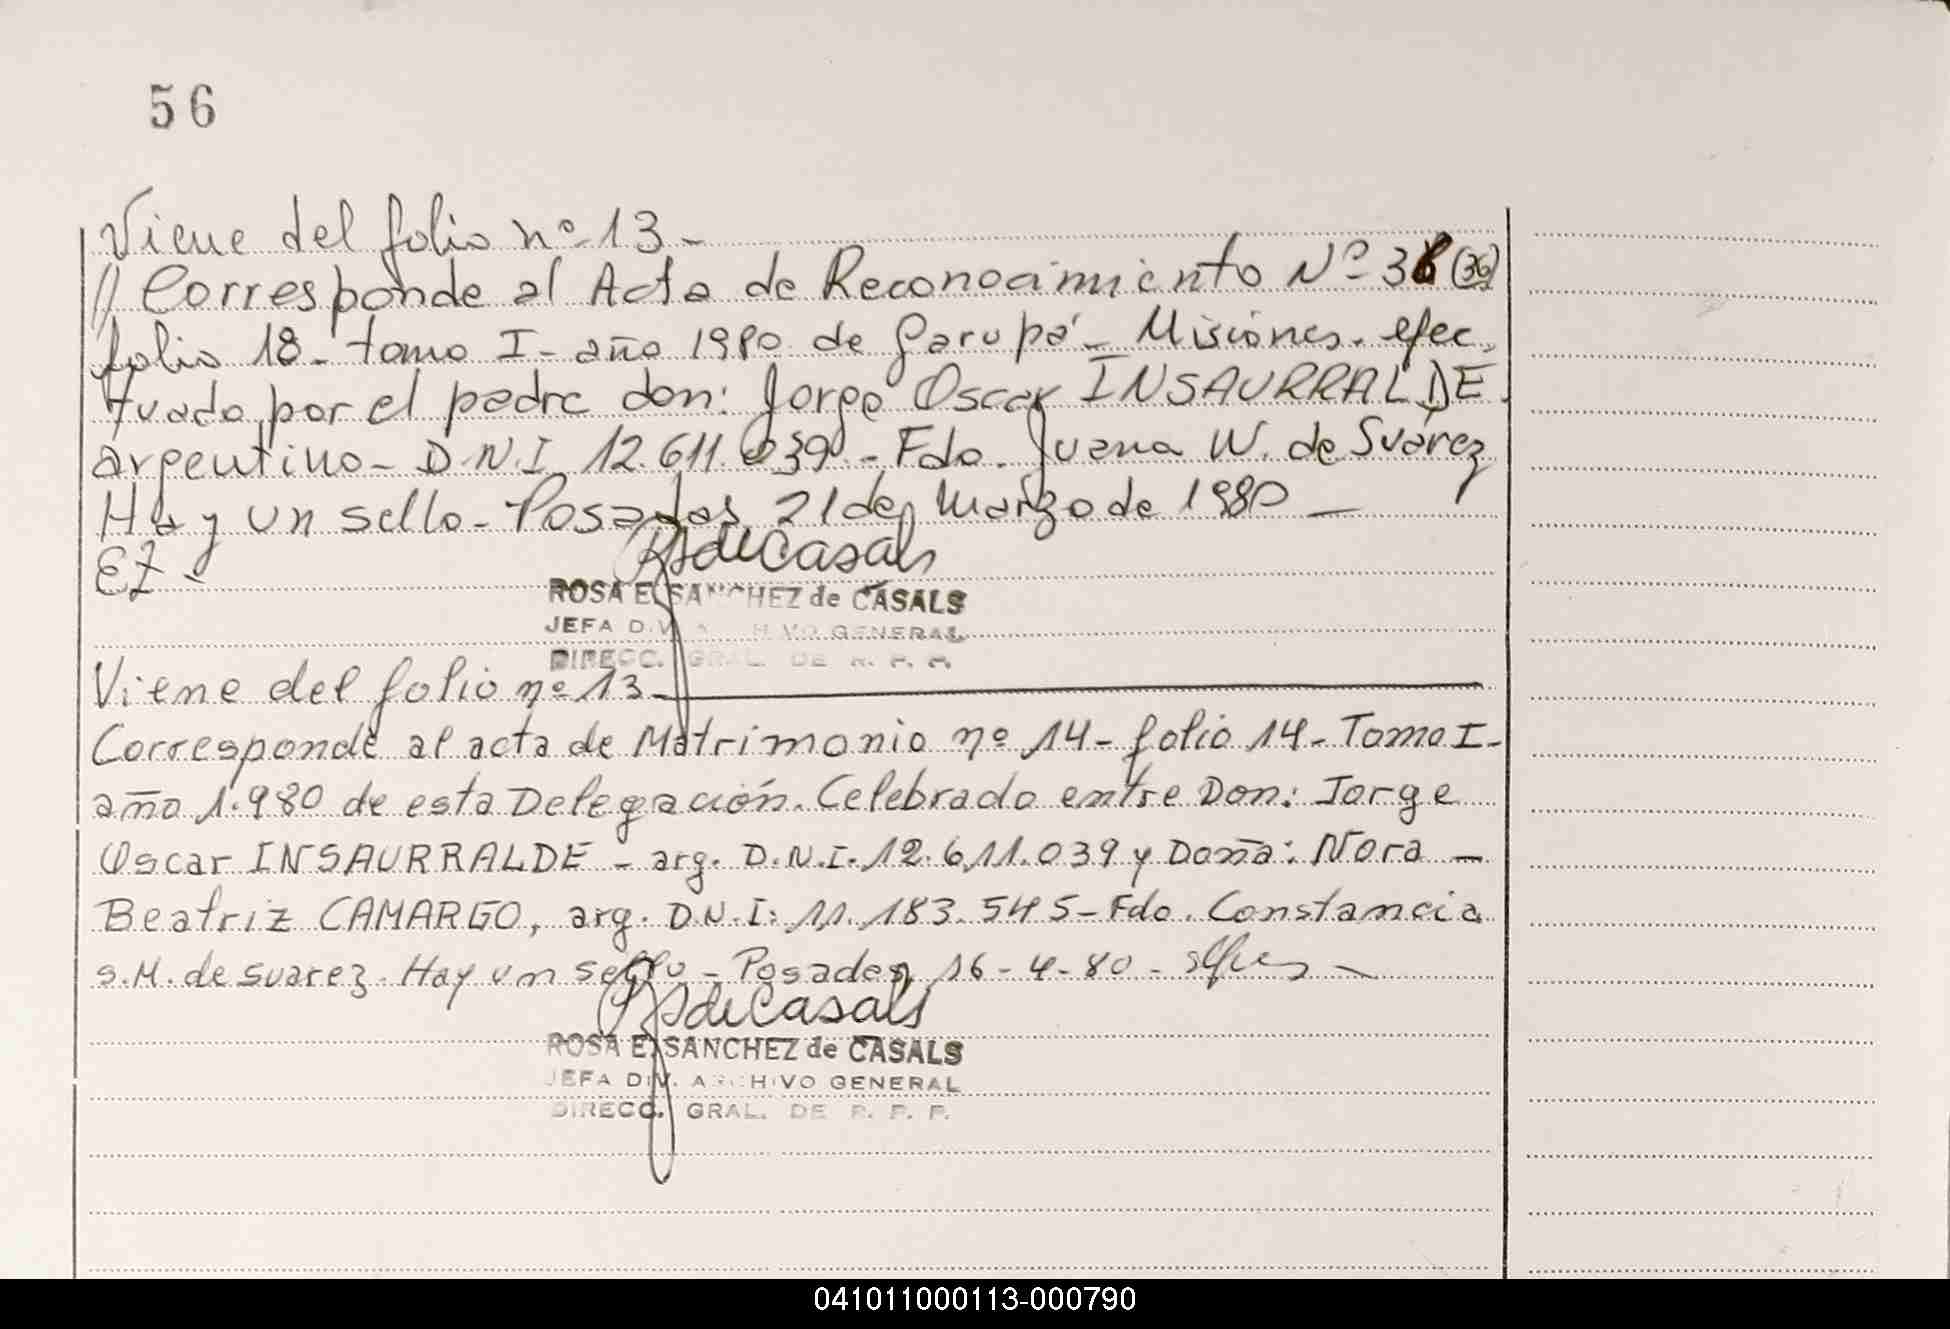 56
Viene del folio nº 13 -
// Corresponde al Acta de Reconocimiento Nº 36 (36)
folio 18 - tomo I - año 1980 de Garupá - Misiones. efec
tuado por el padre don: Jorge Oscar INSAURRALDE.
argentino - D.N.I. 12.611.039 - Fdo. Juana W. de Suárez
Hay un sello - Posadas, 21 de Marzo de 1980 —
EZ -
RSdeCasals
ROSA E. SANCHEZ de CASALS
JEFA DIV. ARCHIVO GENERAL
DIRECC. GRAL. DE R. P. P.
Viene del folio nº 13 -
Corresponde al acta de Matrimonio nº 14 - folio 14 - Tomo I -
año 1.980 de esta Delegación. Celebrado entre Don: Jorge
Oscar INSAURRALDE - arg. D.N.I. 12.611.039 y Doña: Nora -
Beatriz CAMARGO, arg. D.N.I: 11.183.545 - Fdo. Constancia
s.M. de suarez. Hay un sello - Posadas, 16 - 4 - 80 -
RSdeCasals
ROSA E. SANCHEZ de CASALS
JEFA DIV. ARCHIVO GENERAL
DIRECC. GRAL. DE R. P. P.
041011000113-000790